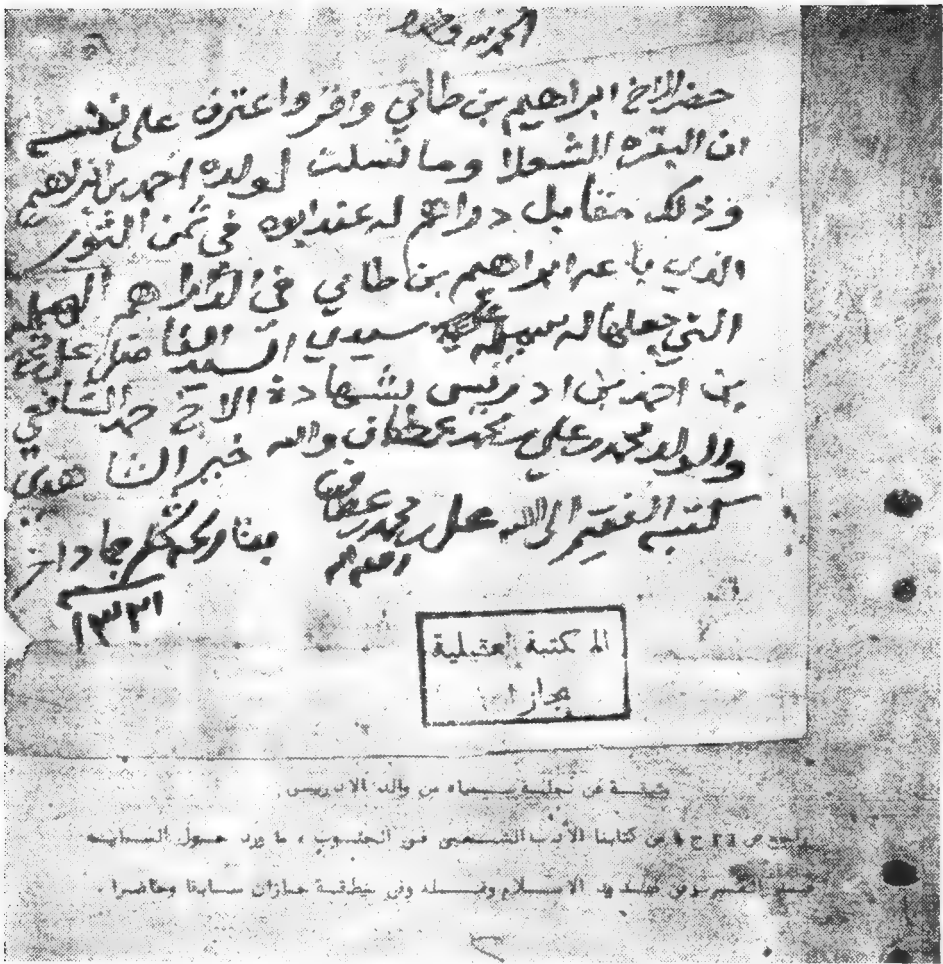 الحمد لله وحده
حضر الاخ ابراهيم بن طامي واقر واعترف على نفسه
ان البقره الشعلا وما نسلت لولده احمد بن ابراهيم
وذلك مقابل دراهم له عند ابوه في ثمن الثور
الذي باعه ابراهيم بن طامي في الدراهم
التي جعلها له سيدي السيد الفاضل علي
بن احمد بن ادريس بشهادة الاخ حمد الشافعي
والولد محمد بن علي بن محمد عطيف والله خير الشاهدين
كتبه الفقير الى الله علي بن محمد بتاريخه جماد اخر
١٣٣١
المكتبة العقيلية
بجازان
وثيقة عن من والد الادريسي
راجع ص ج من كتابنا الأدب الشعبي في الجنوب ، ما ورد حول
الاسلام وقبله وفي منطقة جازان سابقا وحاضرا .